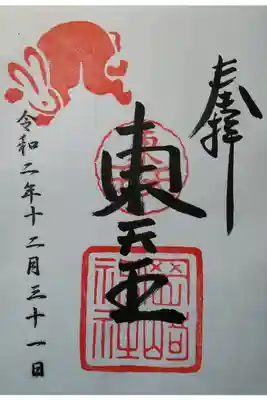 奉拝
東天王
岡崎
神社
令和二年十二月三十一日